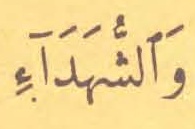 وَٱلشُّهَدَآءِ